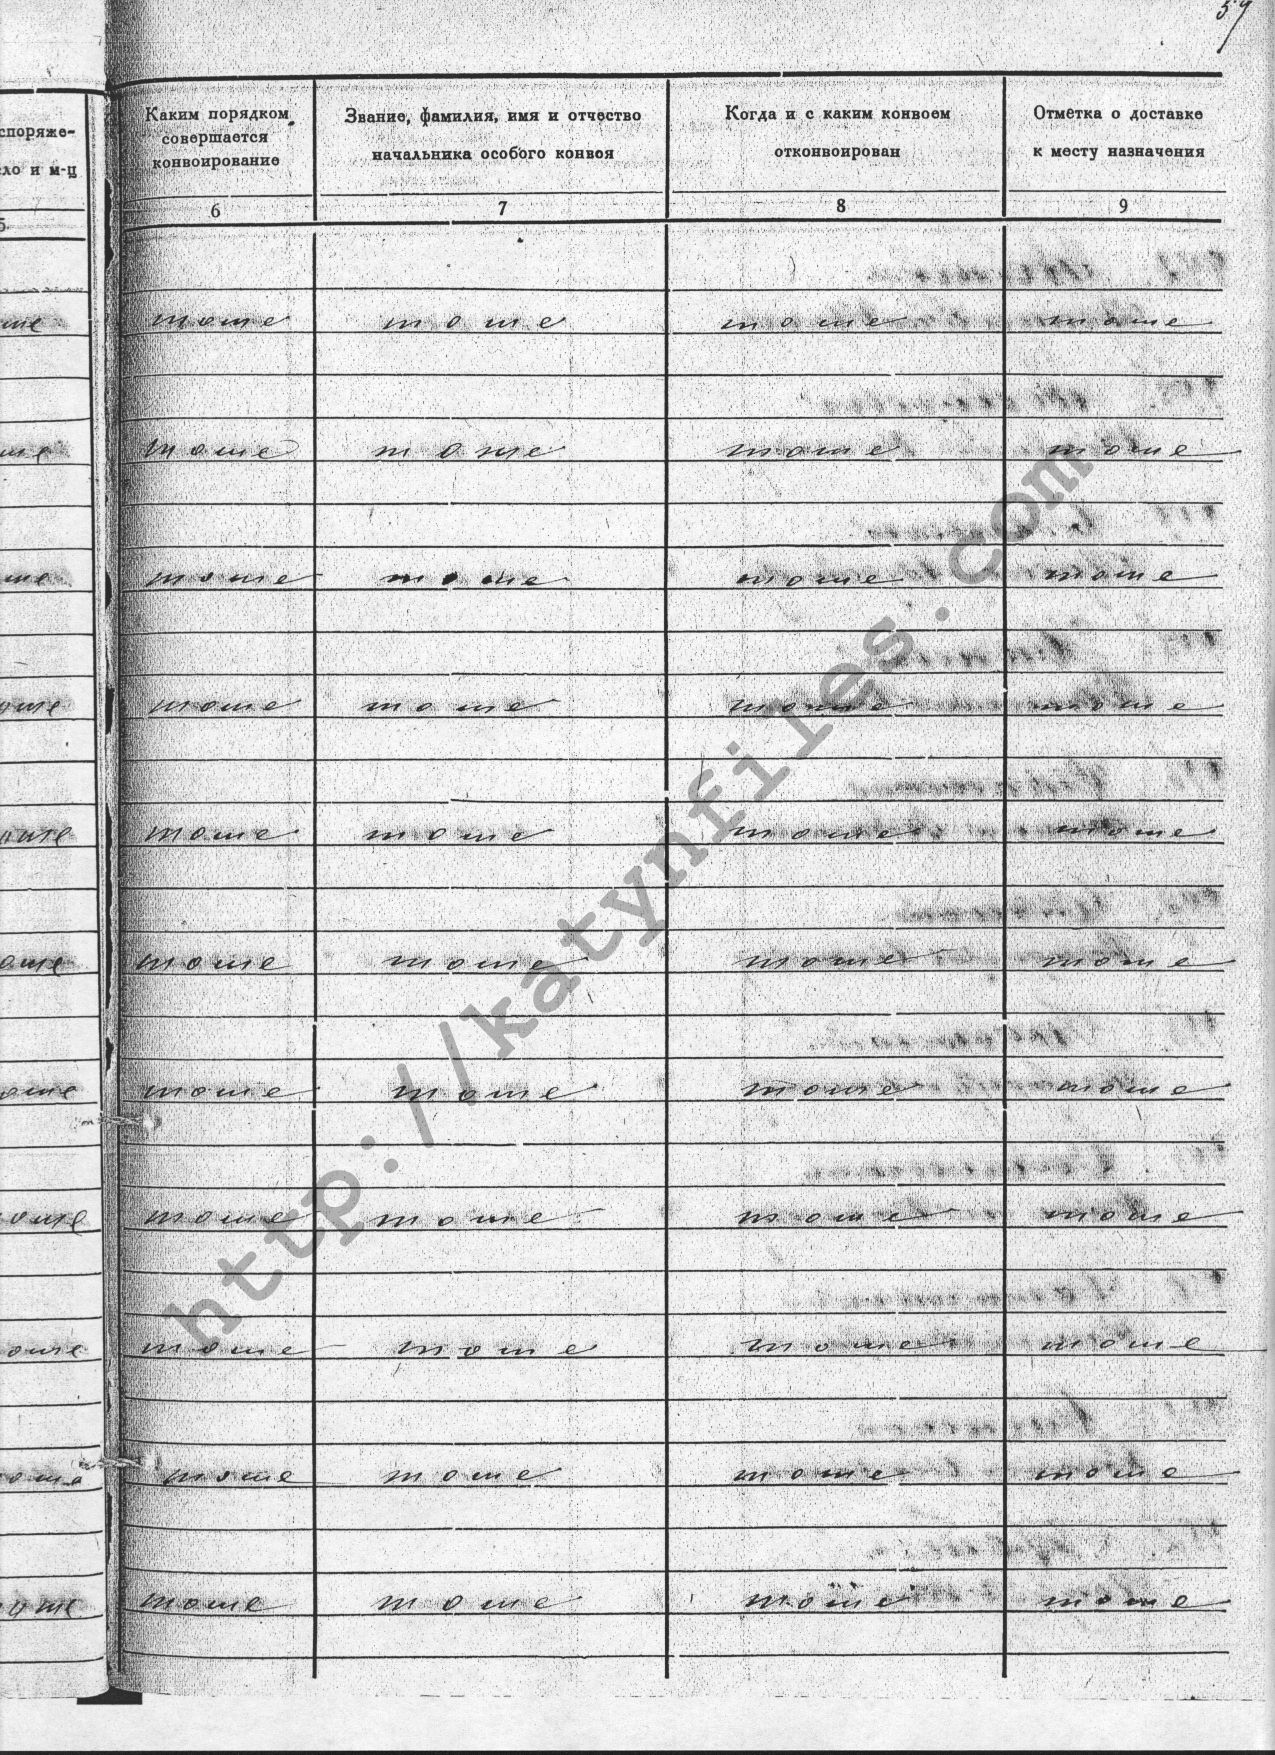 споряже- Каким порядком Звание, фамилия, имя и отчество Когда и с каким конвоем Отметка о доставке
совершается
ло и м-ц конвоирование начальника особого конвоя отконвоирован к месту назначения
5 6 7 8 9
тоже тоже тоже тоже
тоже тоже тоже тоже
тоже тоже тоже тоже
тоже тоже тоже тоже
тоже тоже тоже тоже
тоже тоже тоже тоже
тоже тоже тоже тоже
тоже тоже тоже тоже
тоже тоже тоже тоже
тоже тоже тоже тоже
тоже тоже тоже тоже
http://katynfiles.com